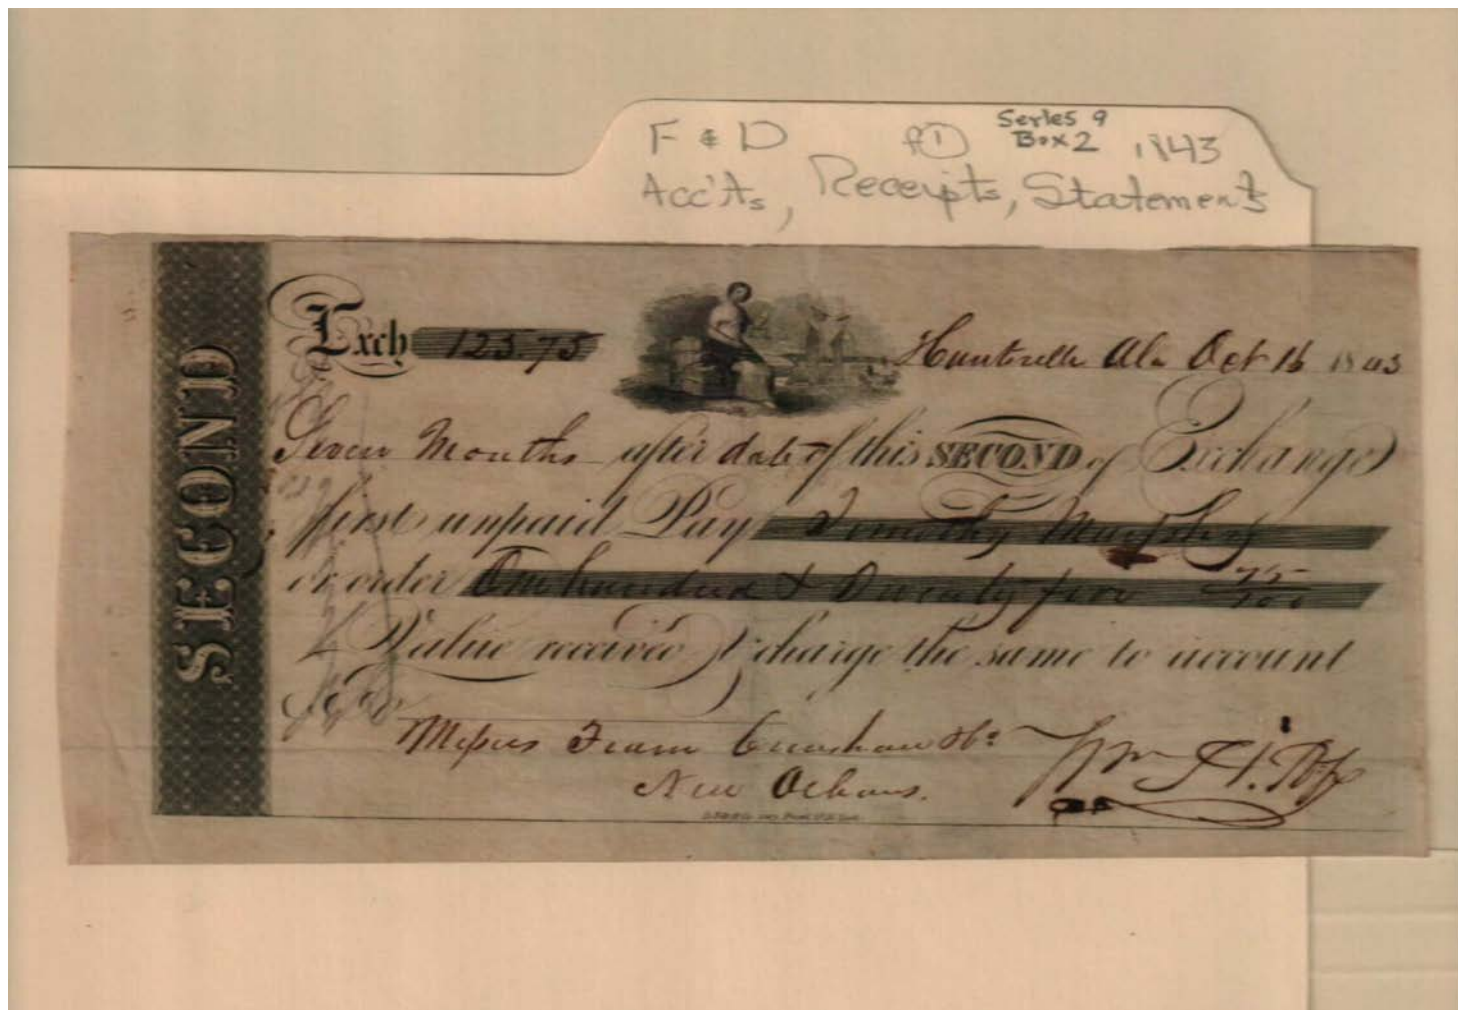 F & D f① Series 9
Box 2 1843
Acc'ts, Receipts, Statements
SECOND
Exch 125.75
Huntsville Ala Oct 16 1843
Seven Months after date of this SECOND of Exchange
first unpaid Pay Timothy Murphy
or order One hundred & Twenty five 75/100
Value received & charge the same to account
Messrs Crenshaw & Co
New Orleans.
Wm H. Pope